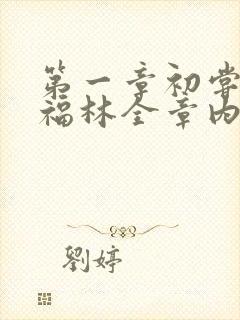 第一章初尝
福林全章内
劉婷